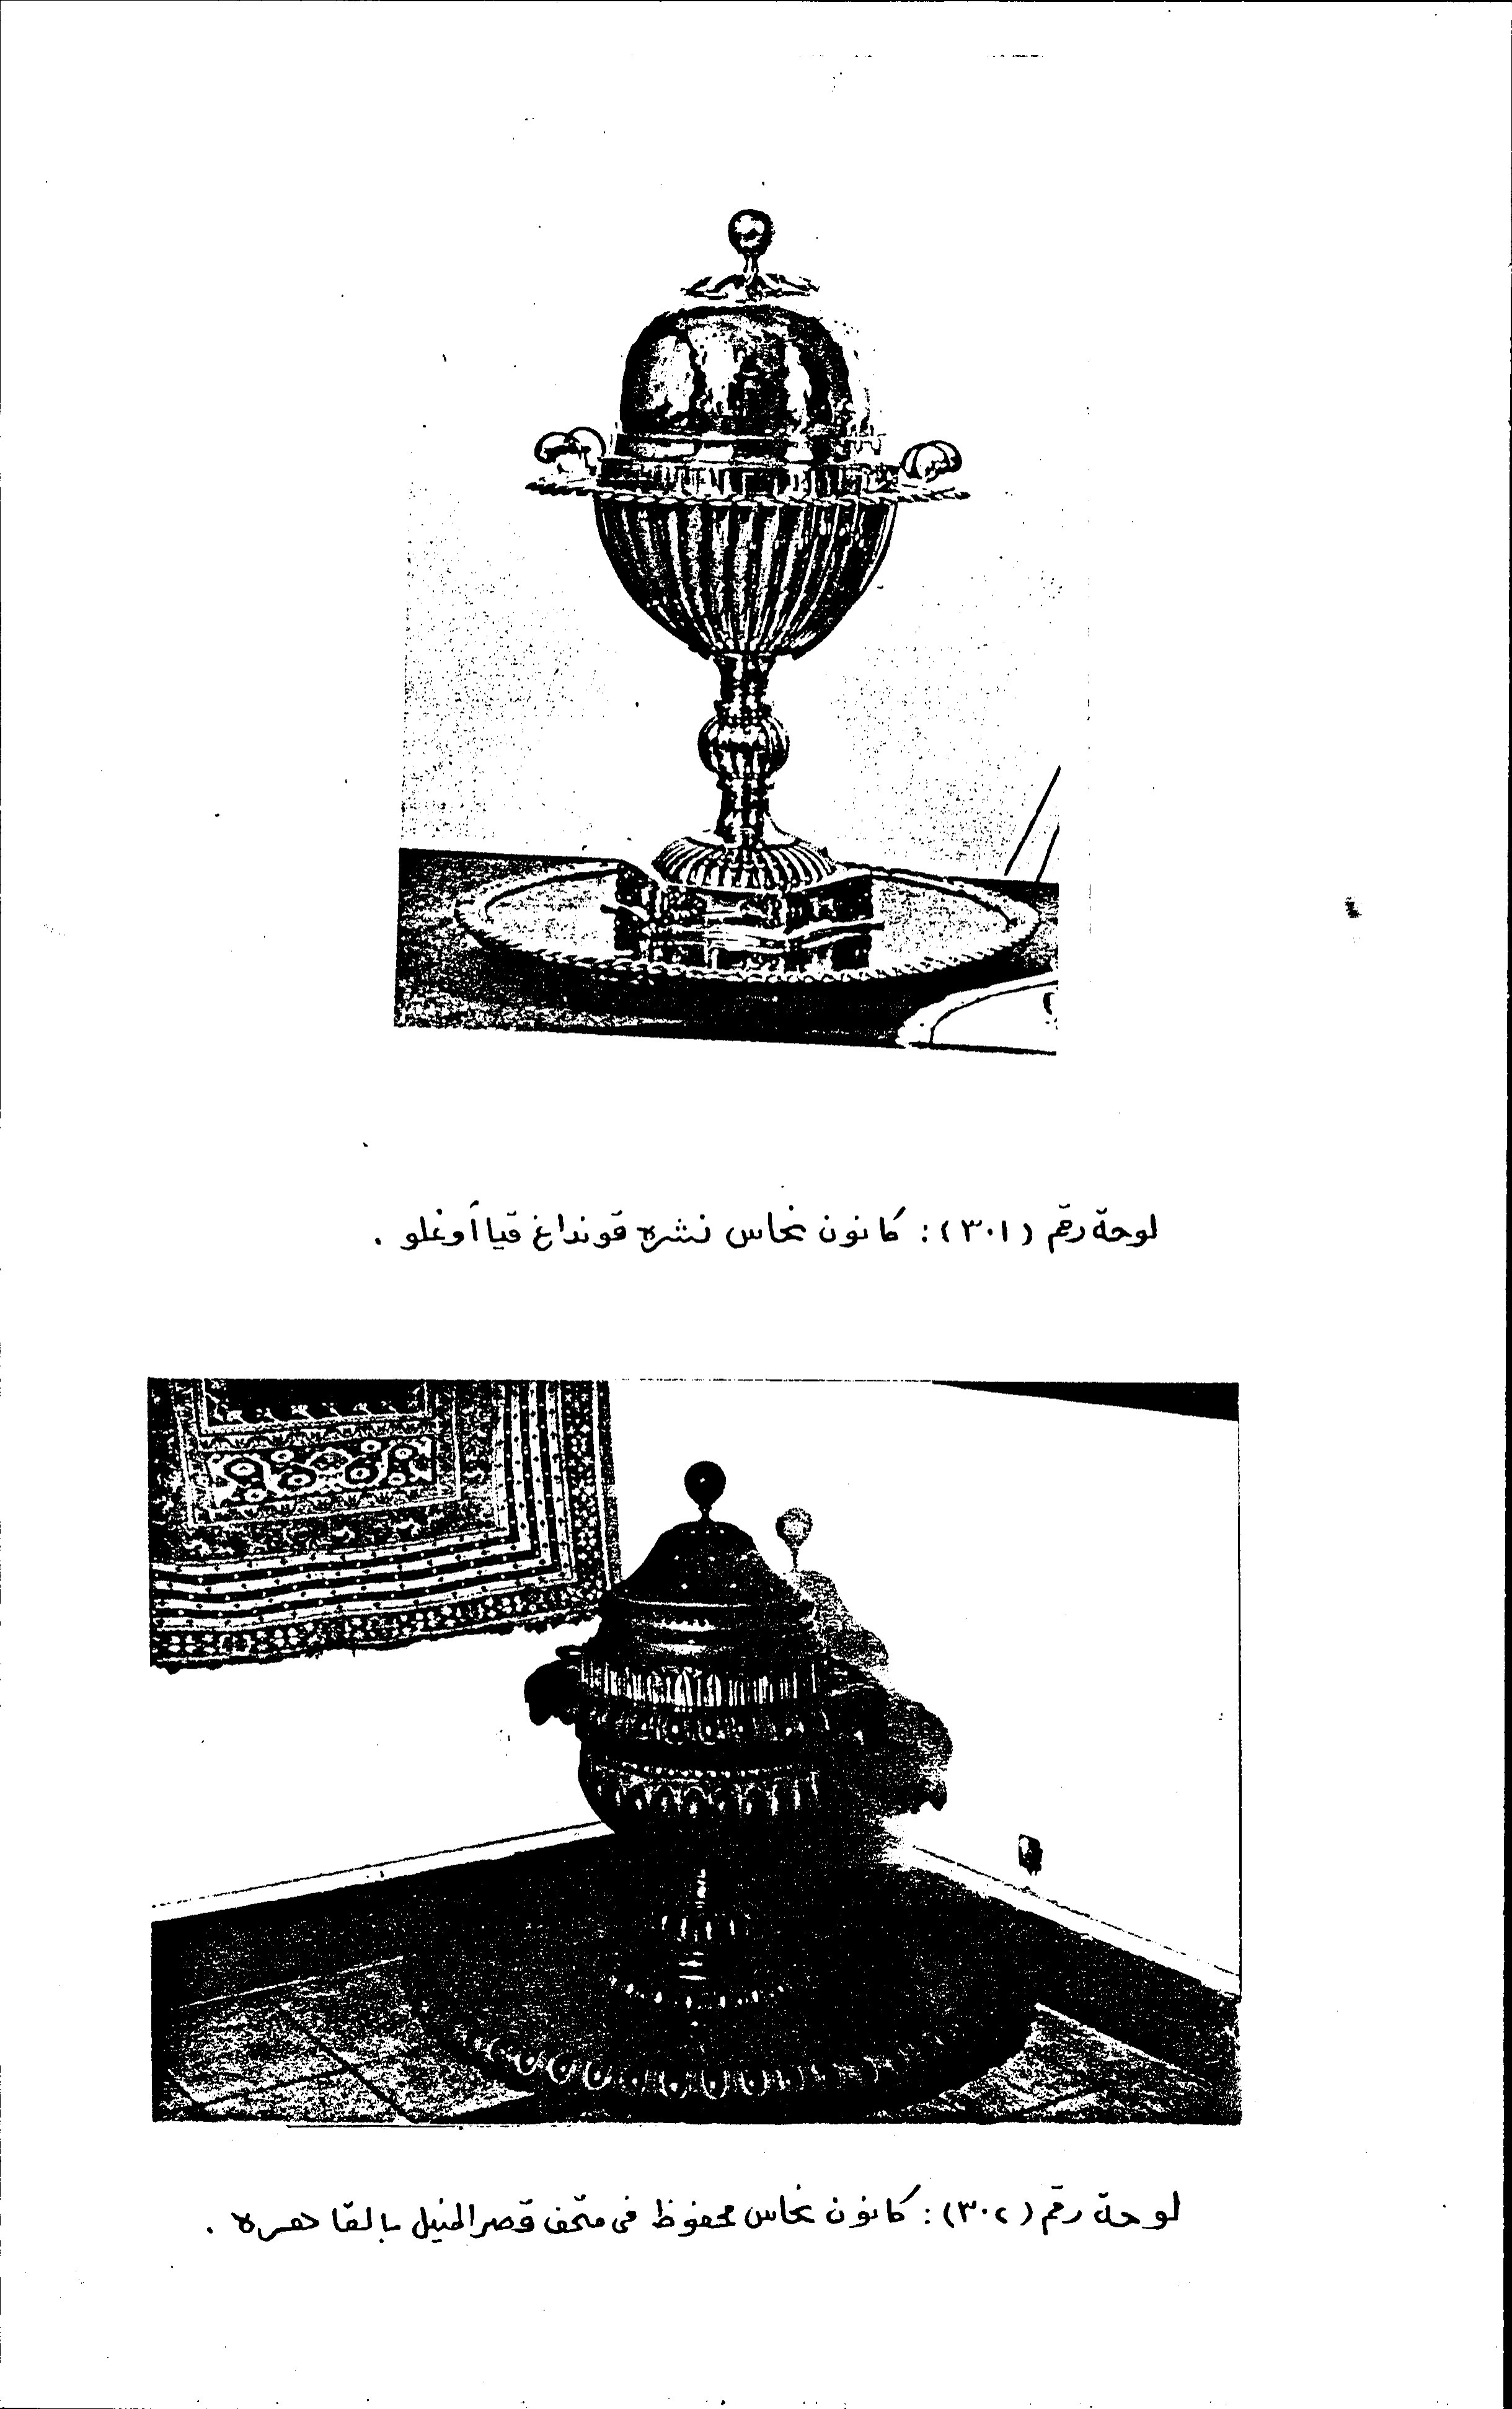 لوحة رقم (٣٠١): كانون نحاس نشره قونداغ قيا أوغلو .
لوحة رقم (٣٠٢): كانون نحاس محفوظ فى متحف قصر المنيل بالقاهره .